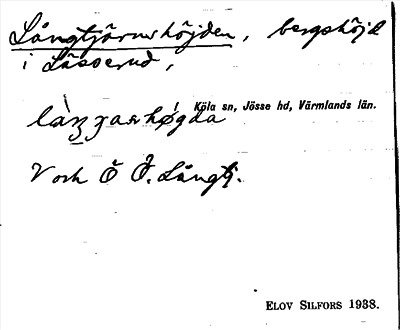 Långtjärnshöjden, bergshöjd
i Lässerud,
Köla sn, Jösse hd, Värmlands län.
V och Ö Ö. Långtj.
ELOV SILFORS 1938.